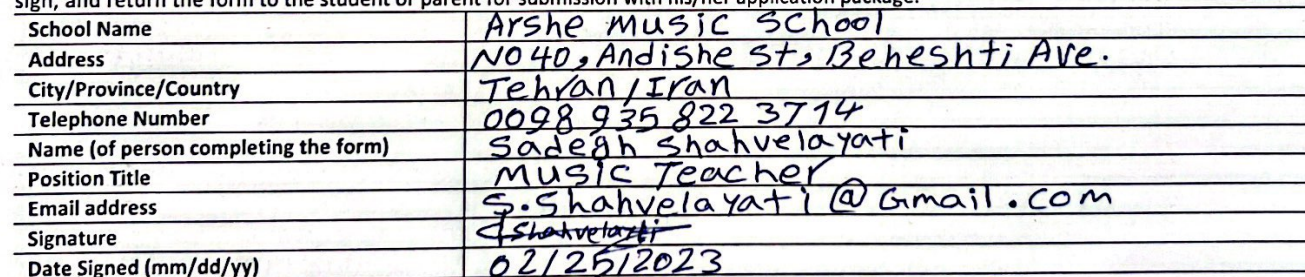 sign, and return the form to the student or parent for submission with his/her application package.
School Name Arshe music school
Address NO 40, Andishe st, Beheshti Ave.
City/Province/Country Tehran/Iran
Telephone Number 0098 935 822 3714
Name (of person completing the form) Sadegh Shahvelayati
Position Title Music Teacher
Email address S.Shahvelayati@Gmail.com
Signature Shahvelayati
Date Signed (mm/dd/yy) 02/25/2023